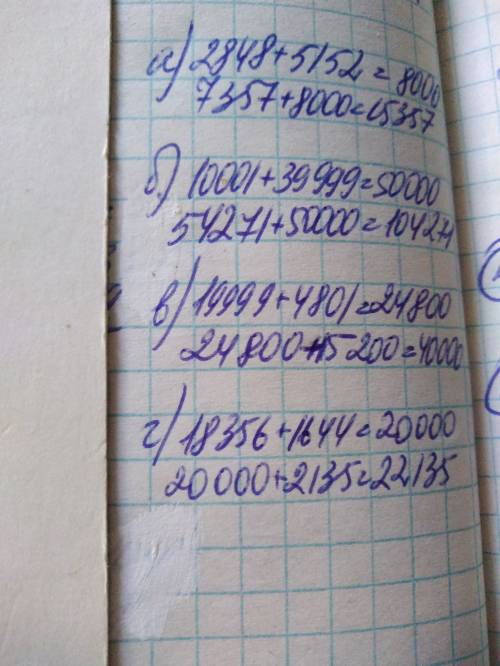 а) 2848+5152=8000
7357+8000=15357
б) 10001+39999=50000
54271+50000=104271
в) 19999+4801=24800
24800+15200=40000
г) 18356+1644=20000
20000+2135=22135